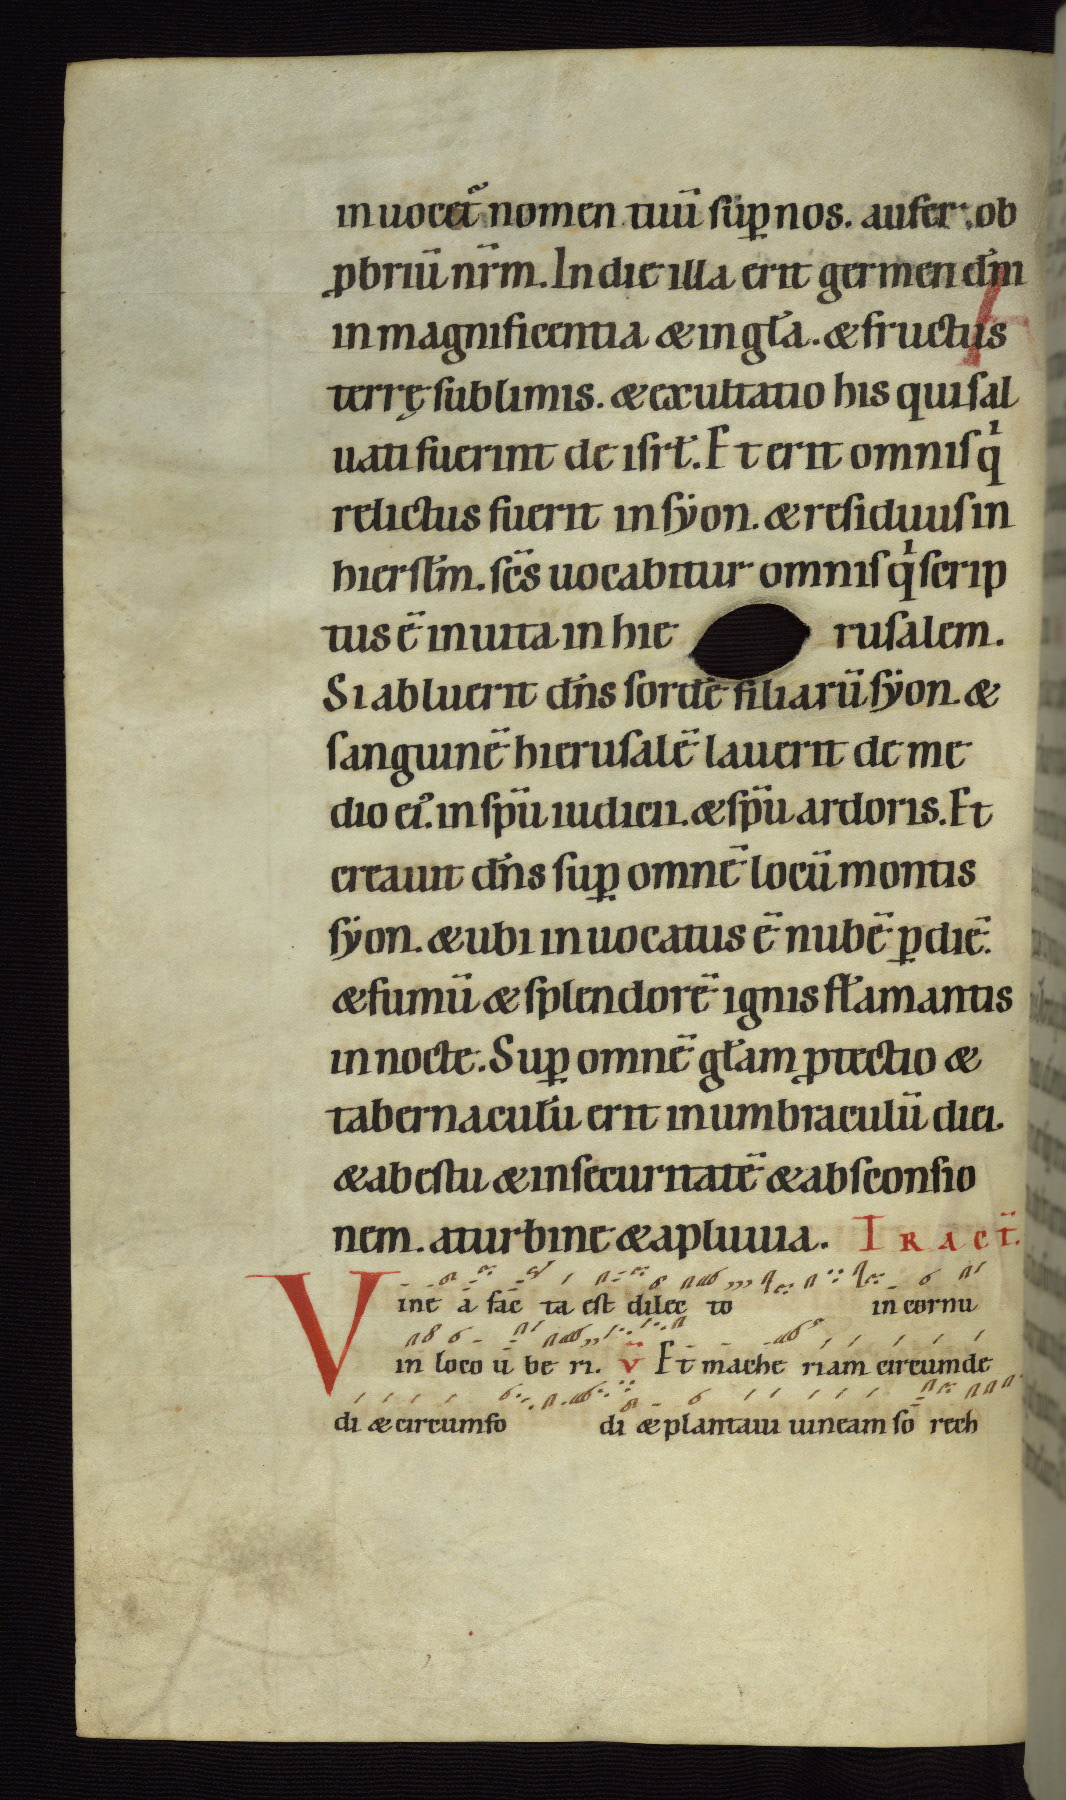 inuocet̃ nomen tuū sup̲ nos. aufer ob
ꝓbriū nr̄m. In die illa erit germen dñi
in magnificentia & in gl̄a. & fructus
terrę sublimis. & exultatio his qui sal
uati fuerint de isrl̄. Et erit omnis qͥ
relictus fuerit in syon. & residuus in
hierslm̄. sc̄s uocabitur omnis qͥ scrip
tus ē in uita in hie rusalem.
Si abluerit dn̄s sordē filiarū syon. &
sanguinē hierusalē lauerit de me
dio eiꝰ. in sp̄u iudicii. & sp̄u ardoris. Et
creauit dn̄s sup̲ omnē locū montis
syon. & ubi inuocatus ē nubē ꝑ diē.
& fumū & splendorē ignis flammantis
in nocte. Sup̲ omnē gl̄am ꝓtectio &
tabernacul̄u erit in umbraculū diei.
& ab estu & in securitatē & absconsio
nem. a turbine & a pluuia. Tract̄.
Vine a fac ta est dilec to in cornu
in loco u be ri. ꝟ Et mache riam circumde
di & circumfo di & plantaui uineam so rech